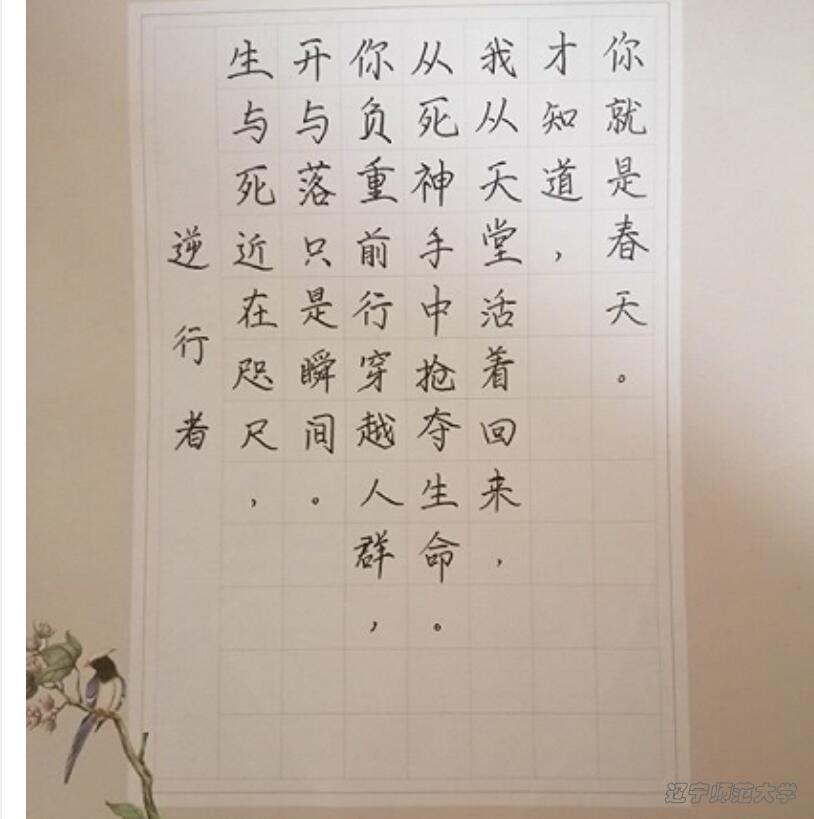 逆行者
生与死近在咫尺，
开与落只是瞬间。
你负重前行穿越人群，
从死神手中抢夺生命。
我从天堂活着回来，
才知道，
你就是春天。
辽宁师范大学